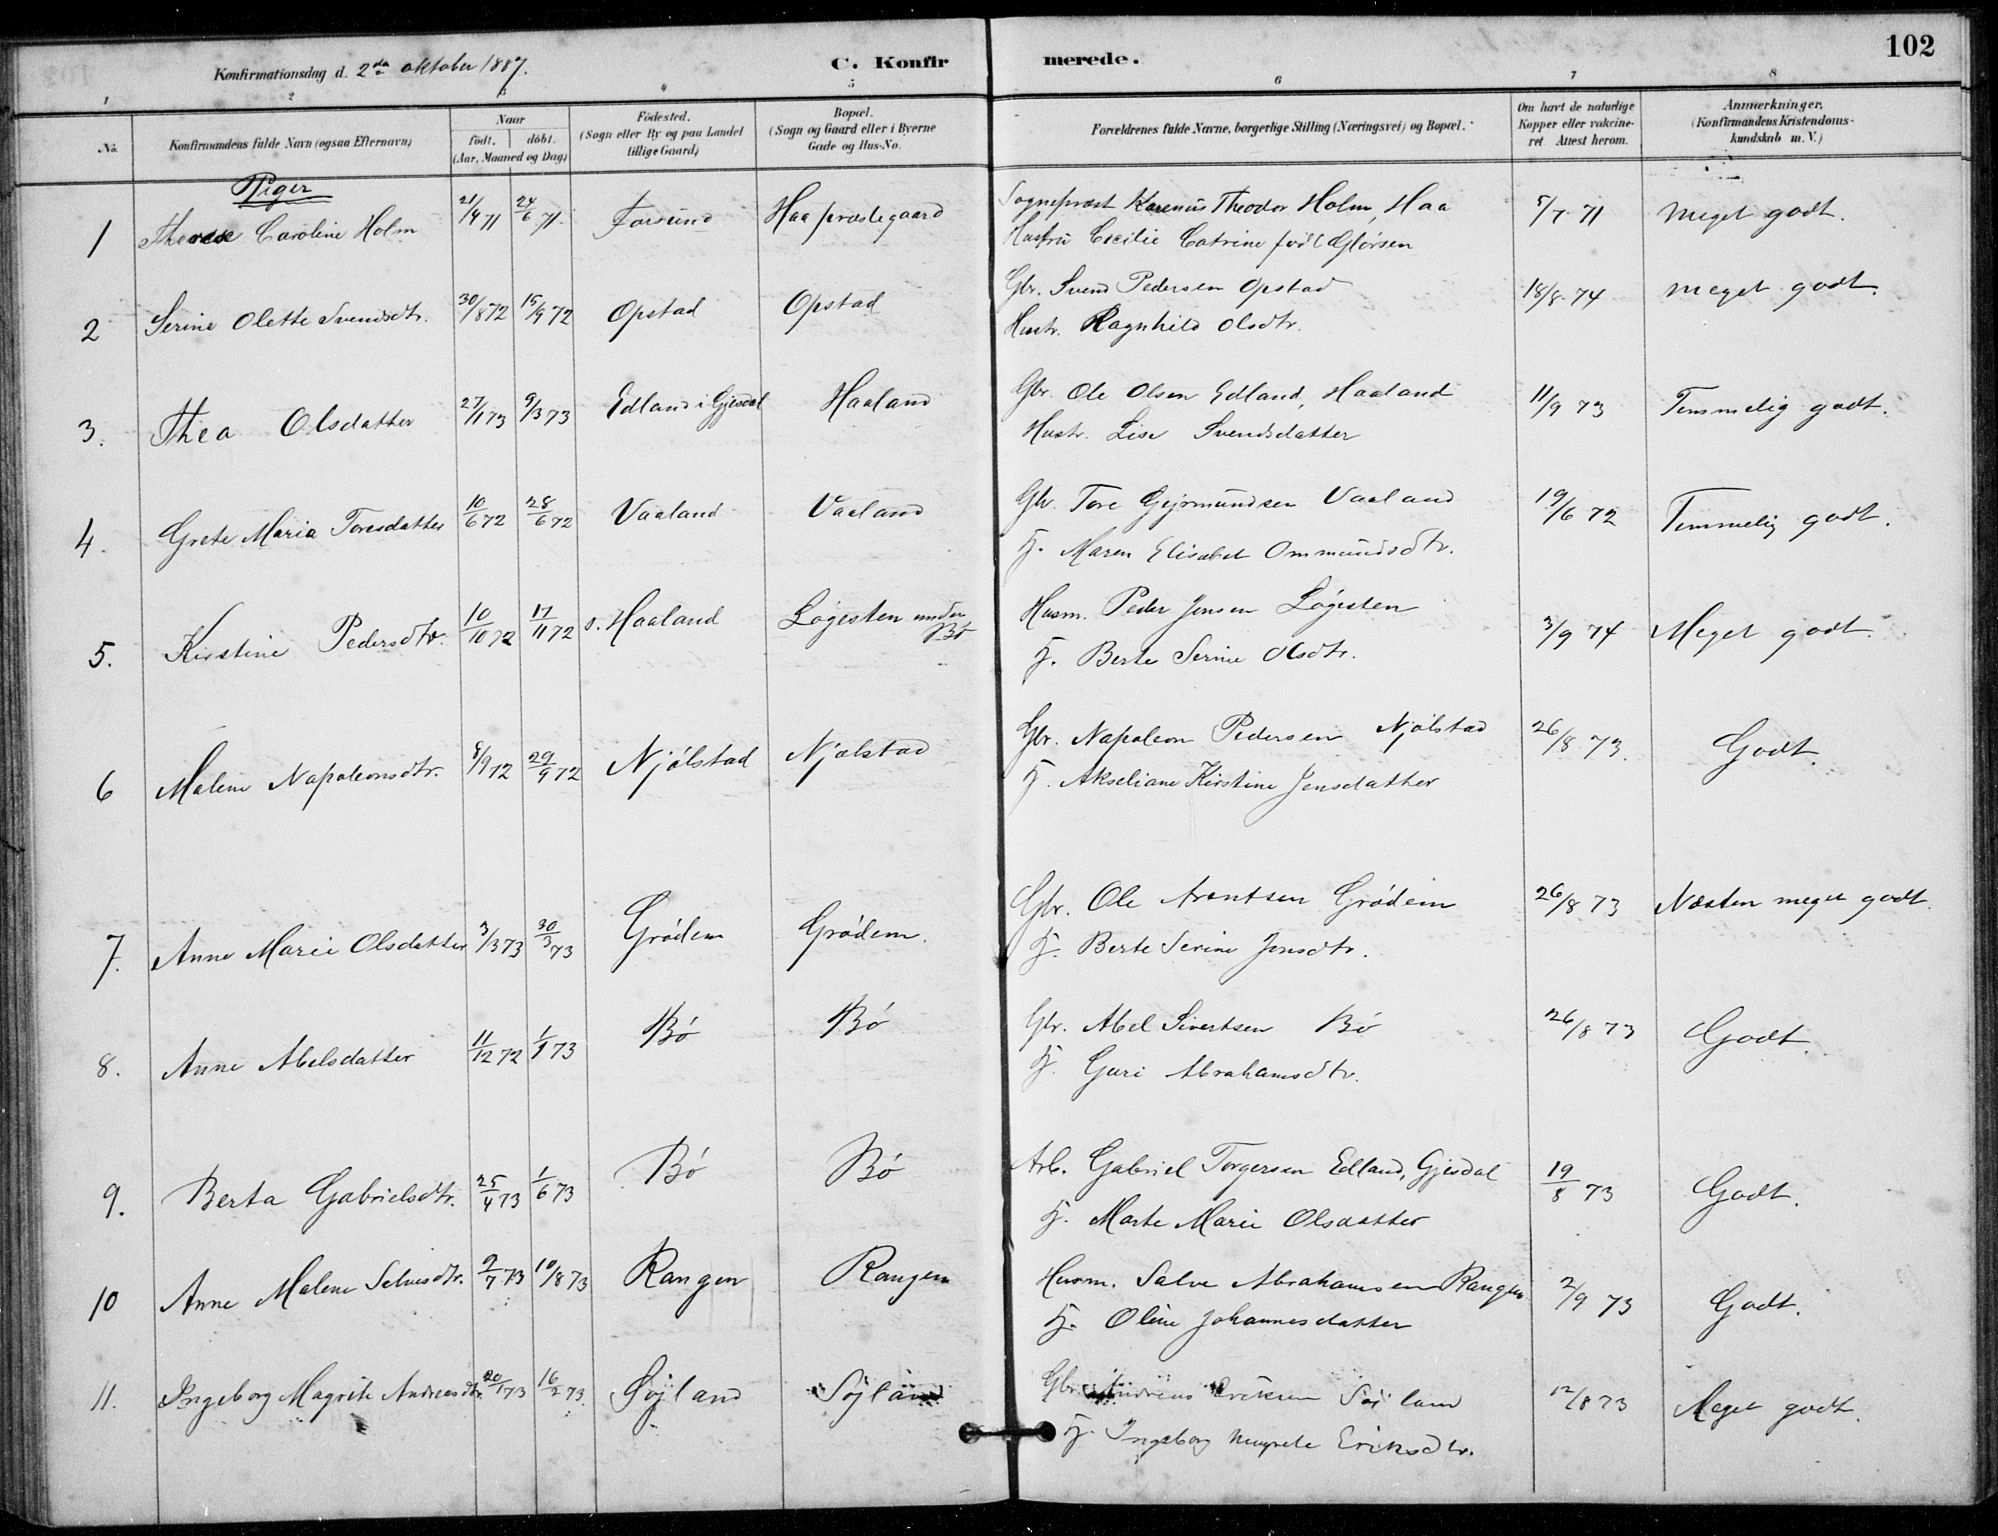 102
Konfirmationsdag d. 2da oktober 1887. C. Konfir merede.
1 2 3 4 5 6 7 8
No. Konfirmandens fulde Navn (ogsaa Efternavn) Naar födt. döbt. (Aar, Maaned og Dag) Födested. (Sogn eller By og paa Landet tillige Gaard) Bopæl. (Sogn og Gaard eller i Byerne Gade og Hus-No. Forældrenes fulde Navne, borgerlige Stilling (Næringsvei) og Bopæl. Om havt de naturlige Kopper eller vakcineret. Attest herom. Anmærkninger. (Konfirmandens Kristendomskundskab m. V.)
Piger
1 Therese Caroline Holm 21/4 71 24/6 71. Farsund Haa præstegaard Sognepræst Karenius Theodor Holm, Haa 5/7 71 Meget godt.
Hustru Cecilie Catrine född Glörsen
2 Serine Olette Svendsdtr. 30/8 72 15/9 72 Opstad Opstad Gbr. Svend Pedersen Opstad 18/8 74 meget godt.
Hustr. Ragnhild Olsdtr.
3. Thea Olsdatter 27/1 73 9/3 73 Edland i Gjesdal Haaland Gbr. Ole Olsen Edland, Haaland 11/9 73 Temmelig godt.
Hustr. Lise Svendsdatter
4. Grete Maria Toresdatter 10/6 72 28/6 72 Vaaland Vaaland Gbr. Tore Gejrmundsen Vaaland 19/6 72 Temmelig godt.
H. Maren Elisabet Ommundsdtr.
5. Kirstine Pedersdtr. 10/10 72 17/11 72 s. Haaland Løgesten under Bö Husm. Peder Jensen Løgesten 3/9 74 Meget godt.
H. Berte Serine Olsdtr.
6 Malene Napoleonsdtr. 8/9 72 29/9 72 Njölstad Njølstad Gbr. Napoleon Pedersen Njölstad 26/8 73. Godt.
H. Akseliane Kirstine Jensdatter
7. Anne Marie Olsdatter 3/3 73 30/3 73 Grödem Grödem. Gbr. Ole Arentsen Grödem 26/8 73 Næsten meget godt.
H. Berte Serine Jonsdtr.
8. Anne Abelsdatter 11/12 72 1/1 73 Bö Bö Gbr. Abel Sivertsen Bö 26/8 73 Godt.
H. Guri Abrahamsdtr.
9. Berta Gabrielsdtr. 25/4 73 1/6 73 Bö Bö Arb. Gabriel Torgersen Edland, Gjesdal 19/8 73 Godt.
H. Marte Marie Olsdatter
10 Anne Malene Salvesdtr. 9/7 73 10/8 73 Rangen Rangen Husm. Salve Abrahamsen Rangen 2/9 73 Godt.
H. Oline Johannesdatter
11. Ingeborg Magrete Andreasdtr. 20/1 73 16/2 73. Söjland Söjland Gbr. Andreas Eriksen Söjland 12/8 73 Meget godt.
H. Ingeborg Magrete Eriksdtr.